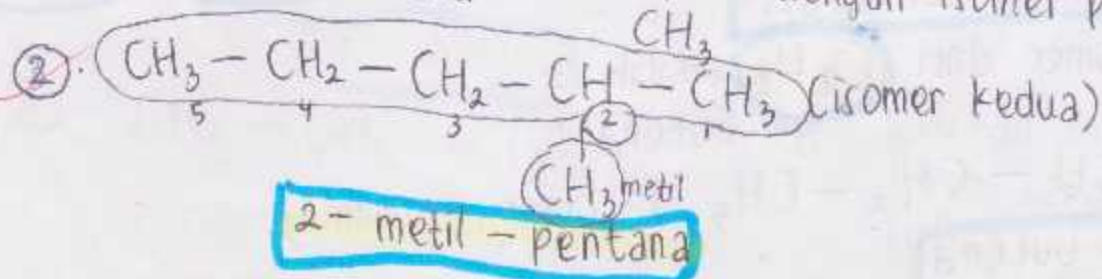 dengan isomer p
CH3
2. CH3 - CH2 - CH2 - CH - CH3 (isomer kedua)
5 4 3 2 1
CH3 metil
2 - metil - pentana